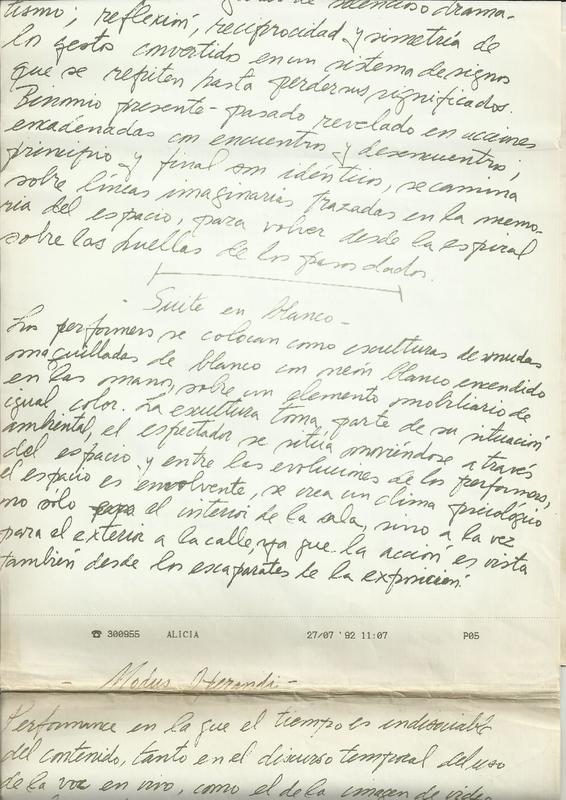 de silencioso drama-
tismo; reflexión, reciprocidad y simetría de
los gestos convertido en un sistema de signos
que se repiten hasta perder sus significados.
Binomio presente-pasado revelado en acciones
encadenadas con encuentros y desencuentros;
principio y final son identicos, se camina
sobre líneas imaginarias trazadas en la memo-
ria del espacio, para volver desde la espiral
sobre las huellas de los pasos dados.
- Suite en blanco -
Los performers se colocan como esculturas desnudas
maquilladas de blanco con neón blanco encendido
en las manos, sobre un elemento mobiliario de
igual color. La escultura toma parte de su situación
ambiental, el espectador se situa moviéndose a través
del espacio y entre las evoluciones de los performers,
el espacio es envolvente, se crea un clima psicológico
no sólo el interior de la sala, sino a la vez
para el exterior a la calle, ya que la acción es vista
también desde los escaparates de la exposición.
☎ 300955 ALICIA 27/07 '92 11:07 P05
- Modus Operandi -
Performance en la que el tiempo es indisociable
del contenido, tanto en el discurso temporal del uso
de la voz en vivo, como el de la imagen de video